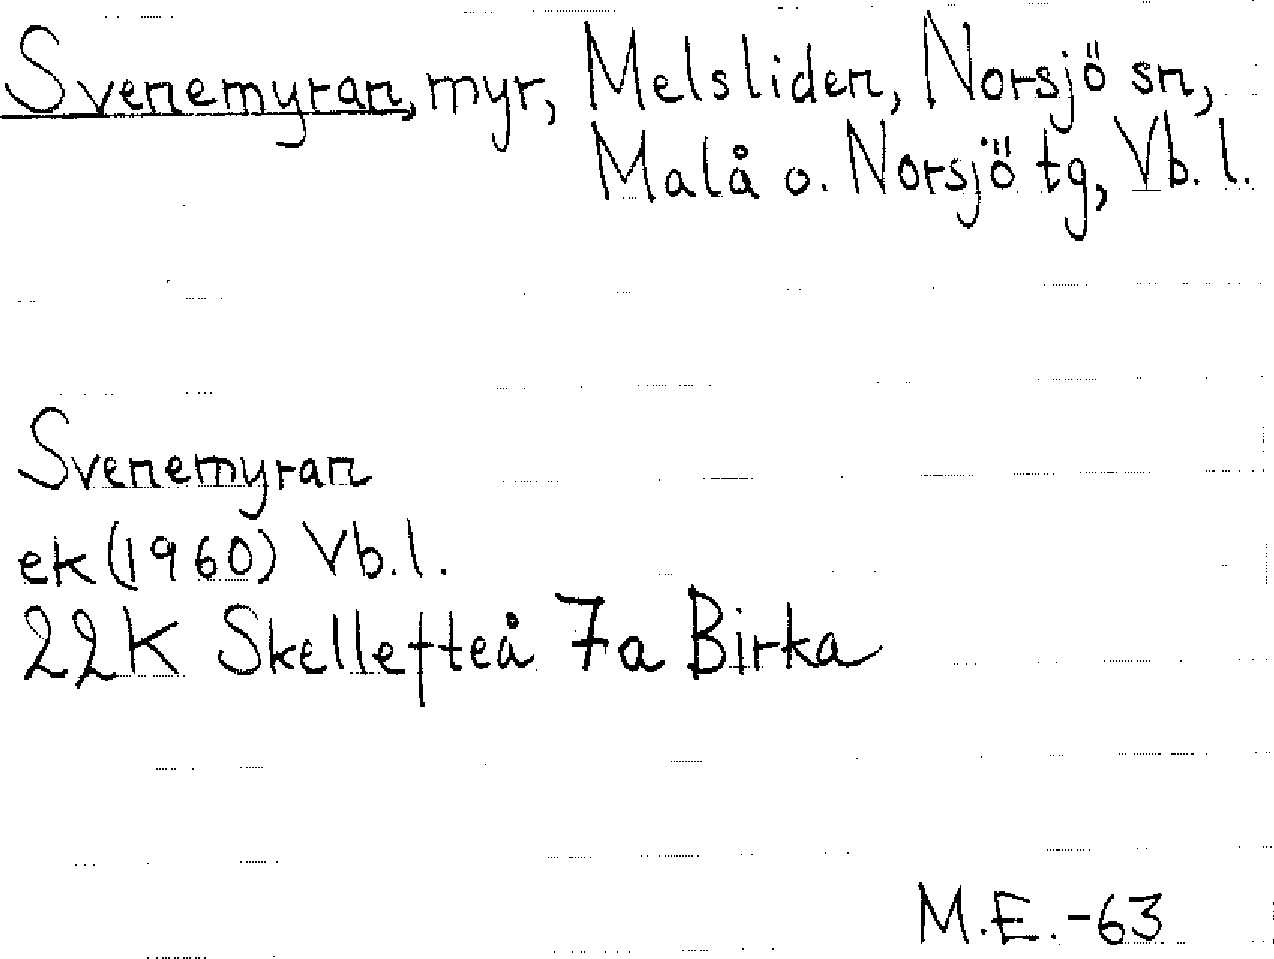 Svenemyran, myr, Melsliden, Norsjö sn,
Malå o. Norsjö tg, Vb. l.
Svenemyran
ek (1960) Vb. l.
22K Skellefteå 7a Birka
M.E. -63